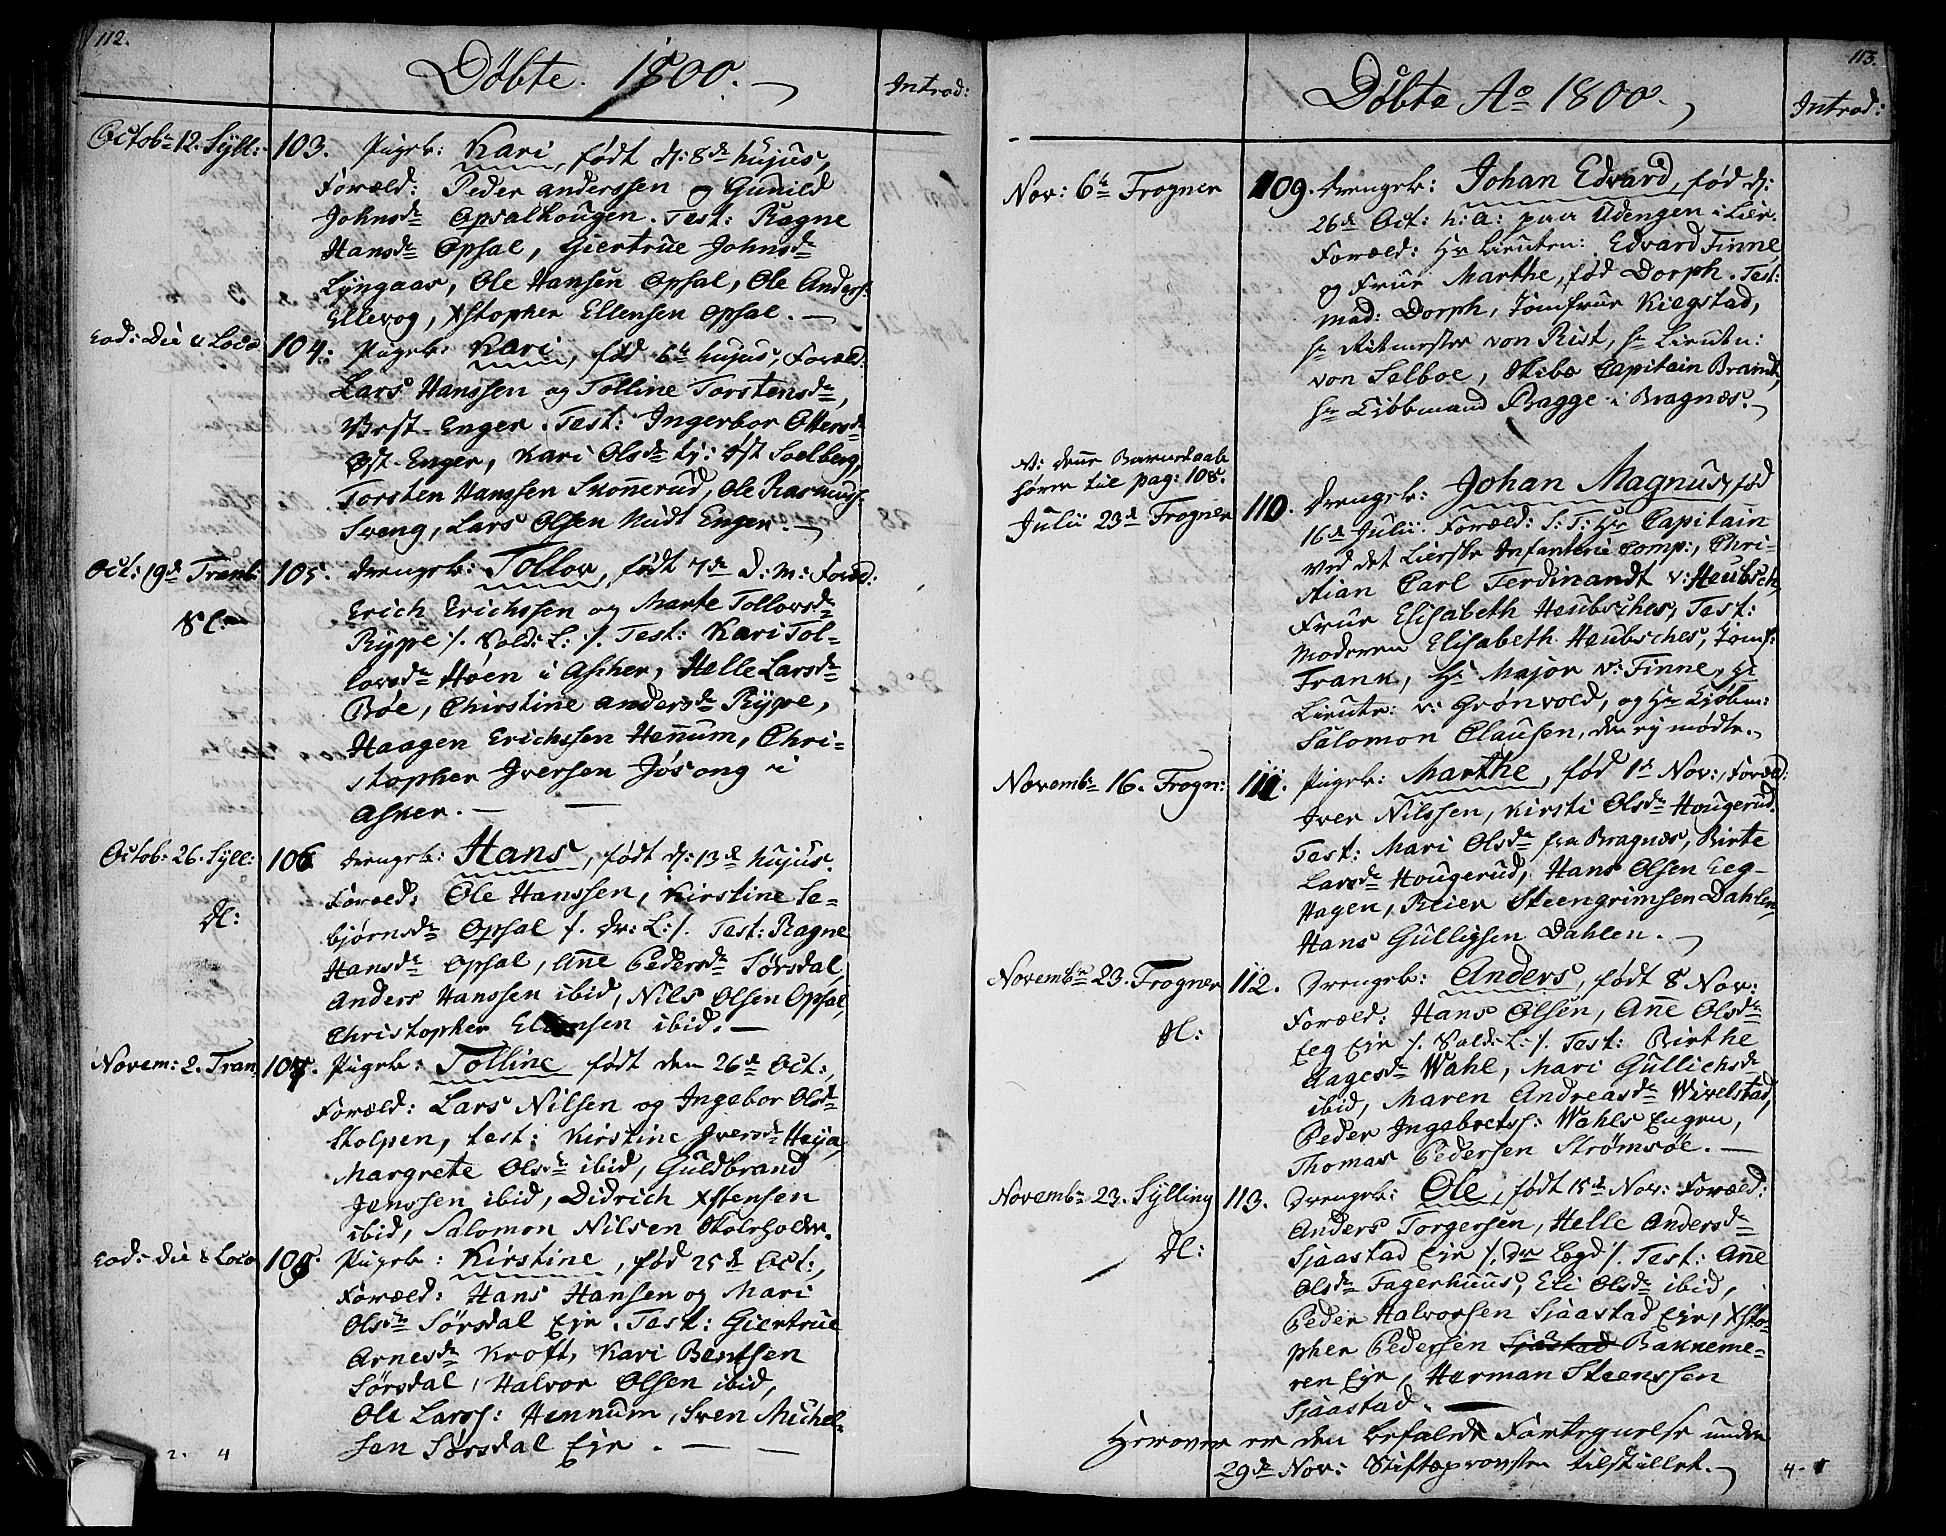 112.
Döbte. 1800.
Introd:
Octobr 12. Sÿll:
103. Pigeb: Kari, födt d: 8de hujus,
Foræld: Peder anderssen og Gunild
Johnsdr Opsalhougen. Test: Ragne
Hansdr Opsal, Giertrue Johnsdr
Lÿngaas, Ole Hansen Opsal, Ole Anders:
Ellevog, Xstopher Ellensen Opsal.
Eod: Die & Loco
104: Pigeb: Kari, fød 6te hujus, Foræld:
Lars Hanssen og Tolline Torstensdr,
Vest-Enger. Test: Ingerbor Ottersdr
Øst-Enger, Kari Olsdr Øst Solberg,
Torsten Hanssen Skonnerud, Ole Rasmuss:
Sveng, Lars Olsen Midt Enger.
Oct: 19de Tranb:
Sl:
105. Drengeb: Tollov, födt 7de D: M: Foræld:
Erich Erichssen og Marte Tollovsdr
Rÿpe /. Sold: L: /. Test: Kari Tol-
lovsdr Höen i Asker, Helle Larsdr
Böe, Chirstine andersdr Rÿpe,
Haagen Erichssen Hennum, Chri-
stopher Iversen Jösong i
Asker.
Octob: 26. Sÿll:
Dl:
106 Drengeb: Hans, födt d: 13de hujus.
Foræld: Ole Hanssen, Kirstine Se-
björnsdr Opsal /. Dr: L: /. Test: Ragne
Hansdr Opsal, Anne Pedersdr Sörsdal,
Anders Hanssen ibid, Nils Olsen Opsal,
Christopher Ellensen ibid.
Novem: 2. Tran:
107. Pigeb: Tolline födt den 26de Oct:,
Foræld: Lars Nilsen og Ingebor Olsdr
Stolpen, test: Kirstine Iversdr Heÿa,
Margrete Olsdr ibid, Guldbrand
Jenssen ibid, Didrich Xstensen
ibid, Salomon Nilsen Skoleholder.
Eod: Die & Loco
108. Pigeb: Kirstine, fød 25de Oct:,
Foræld: Hans Hansen og Mari
Olsdr Sörsdal Eje. Test: Giertrue
Arnesdr Kroft, Kari Bentsen
Sörsdal, Halvor Olsen ibid,
Ole Larss: Hennum, Sven Michel-
sen Sörsdal Eje.
2. 4
113.
Döbte Ao 1800.
Introd:
Nov: 6te Frogner
109. Drengeb: Johan Edvard, fød d:
26de Oct: h: a: paa Udengen i Lier.
Foræld: Hr Lieuten: Edvard Finne
og Frue Marthe, fød Dorph. Test:
Mad: Dorph, Jomfrue Kiegstad,
Hr Ritmester von Rist, Hr Lieuten:
von Selboe, Skibs Capitain Brandt,
Hr Kiöbmand Bagge i Bragnæs.
N: denne Barnedaab
hörer til pag: 108.
Julii 23de Frogner
110. Drengeb: Johan Magnus, fød
16de Julii. Foræld: S: T: Hr Capitain
ved det Lierske Infanterie Comp:, Chri-
stian Carl Ferdinandt v: Heubsch,
Frue Elisabeth Heubsches, Test:
Moderen Elisabeth Heubsches, Jomf:
Frank, Hr Major v: Finne, Hr
Lieutn: v: Grönvold, og Hr Kiöbm:
Salomon Clausen, der ej mödte.
Novembr 16. Frogn:
111. Pigeb: Marthe, fød 1te Nov:, Foræld:
Iver Nilssen, Kirsti Olsdr Hougerud.
Test: Mari Olsdr fra Bragnæs, Birte
Larsdr Hougerud, Hans Olsen Eeg-
Hagen, Reier Steengrimsen Dahlen,
Hans Gulligsen Dahlen.
Novembr 23. Frogner
Dl:
112. Drengeb: Anders, födt 8 Nov:
Foræld: Hans Olsen, Anne Olsdr
Eeg Eje /. Sold: L: /. Test: Birthe
Aagesdr Wahl, Mari Gullichsdr
ibid, Maren Andreasdr Wivelstad,
Peder Ingebretss: Wahls Engen,
Thomas Pedersen Strömsöe.
Novembr 23. Sÿlling
Dl:
113. Drengeb: Ole, födt 15de Nov: Foræld:
Anders Torgersen, Helle Andersdr
Sjaastad Eje /. Dr Lægd /. Test: Anne
Olsdr Fagerhuus, Eli Olsdr ibid,
Peder Halvorsen Sjaastad Eje, Xsto-
pher Pedersen Sjaastad Bakneme-
ren Eje, Herman Steenssen
Sjaastad.
Herover er den befalede Fortegnelse under
29de Nov: Stiftsprovsten tilstillet.
4-1